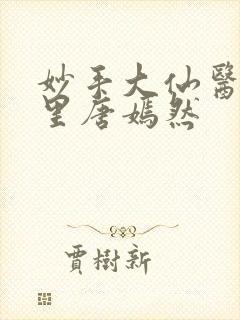 妙手大仙醫
里唐嫣然
賈樹新